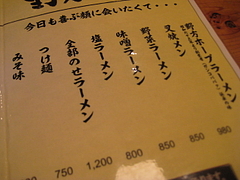 今日も喜ぶ顔に会いたくて・・・
野方ホープラーメン
叉焼メン
野菜ラーメン
味噌ラーメン
塩ラーメン
全部のせラーメン
つけ麺
みそ味
750 1,200 800 850 850 980